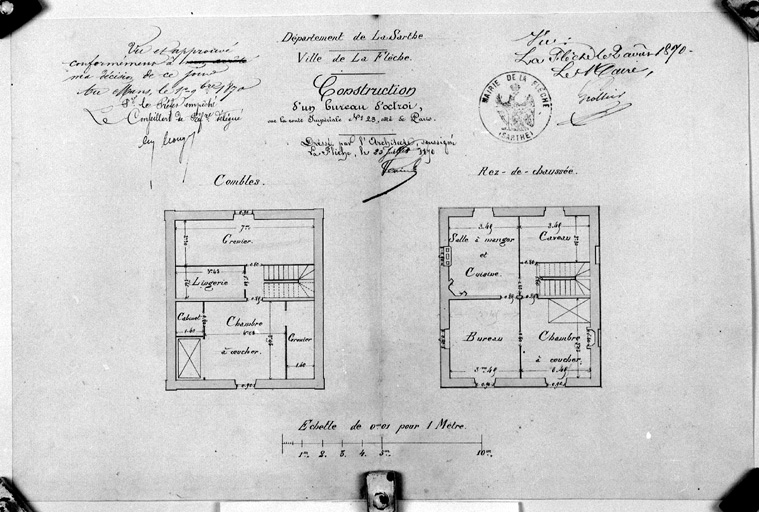 Vu et approuvé
conformément à
ma décision de ce jour
Au Mans, le 19 9bre 1870
Pr le Préfet empêché
Le Conseiller de Préfre délégué
Département de La Sarthe
Ville de La Flèche.
Construction
d'un bureau d'octroi,
sur la route Impériale No 23, côté de Paris.
Dressé par l'Architecte, soussigné
La Flèche, le 25 Juillet 1870
Vu:
La Flèche le 2 août 1870.
Le Maire,
MAIRIE DE LA FLÈCHE
(SARTHE)
Combles.
Rez-de-chaussée.
0.90
7m
Grenier.
Lingerie
Cabinet
1.40
Chambre
à coucher.
Grenier
1.40
0.90
3.49
3.49
Salle à manger
et
Cuisine.
Caveau
Bureau
Chambre
à coucher.
3m.49
0.90
0.90
3.49
Echelle de 0m01 pour 1 Mètre.
1m. 2. 3. 4. 5m. 10m.